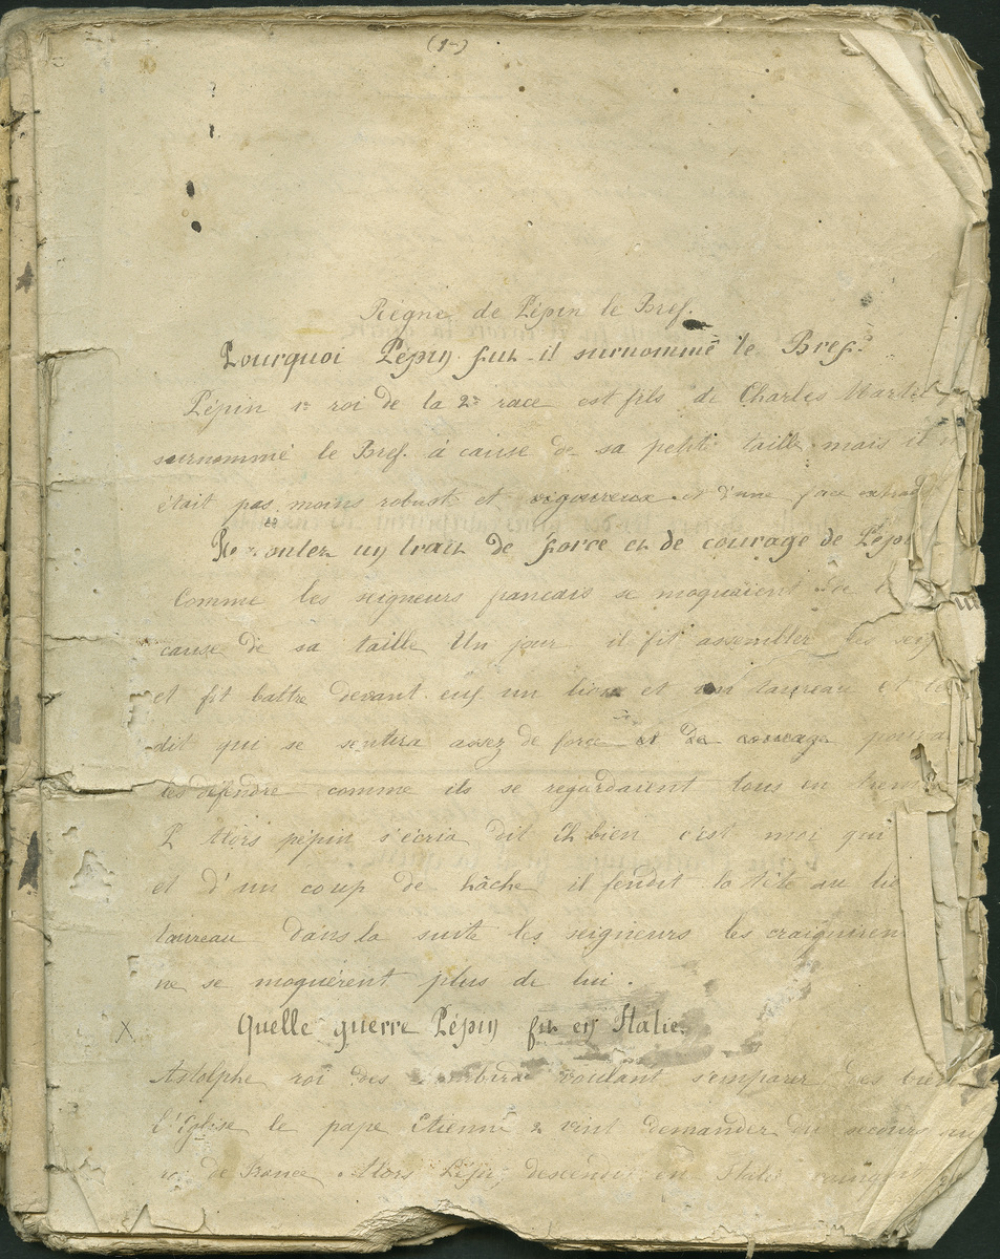 (1)
Règne de Pépin le Bref.
Pourquoi Pépin fut-il surnommé le Bref?
Pépin 1er roi de la 2e race est fils de Charles Martel
surnommé le Bref. à cause de sa petite taille mais il n
était pas moins robust et vigoureux et d'une force
Racontez un trait de force et de courage de Pépi
Comme les seigneurs francais se moquaient de
cause de sa taille Un jour il fit assembler les
et fit battre devant eux un lion et un taureau et
dit qui se sentira assez de force et de courage pour
les défendre comme ils se regardaient tous en
Alors pépin s'écria dit Eh bien c'est moi qui
et d'un coup de hâche il fendit la tête au
taureau dans la suite les seigneurs les craignirent
ne se moquérent plus de lui.
X Quelle guerre Pépin fit en Italie.
Astolphe roi des voulant s'emparer des biens
l'Eglise le pape Etienne 2 vint demander du secours au
roi de France Alors Pépin descendit en Italie